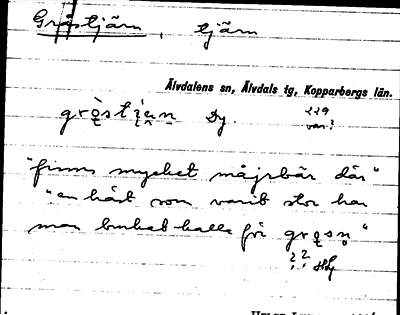 Gråstjärn, tjärn
Älvdalens sn, Älvdals tg, Kopparbergs län.
gròstìęn Dy. 229
var?
"finns mycket måjsbär där"
"en häst som varit stor har
man brukat kalla för grosn"
??